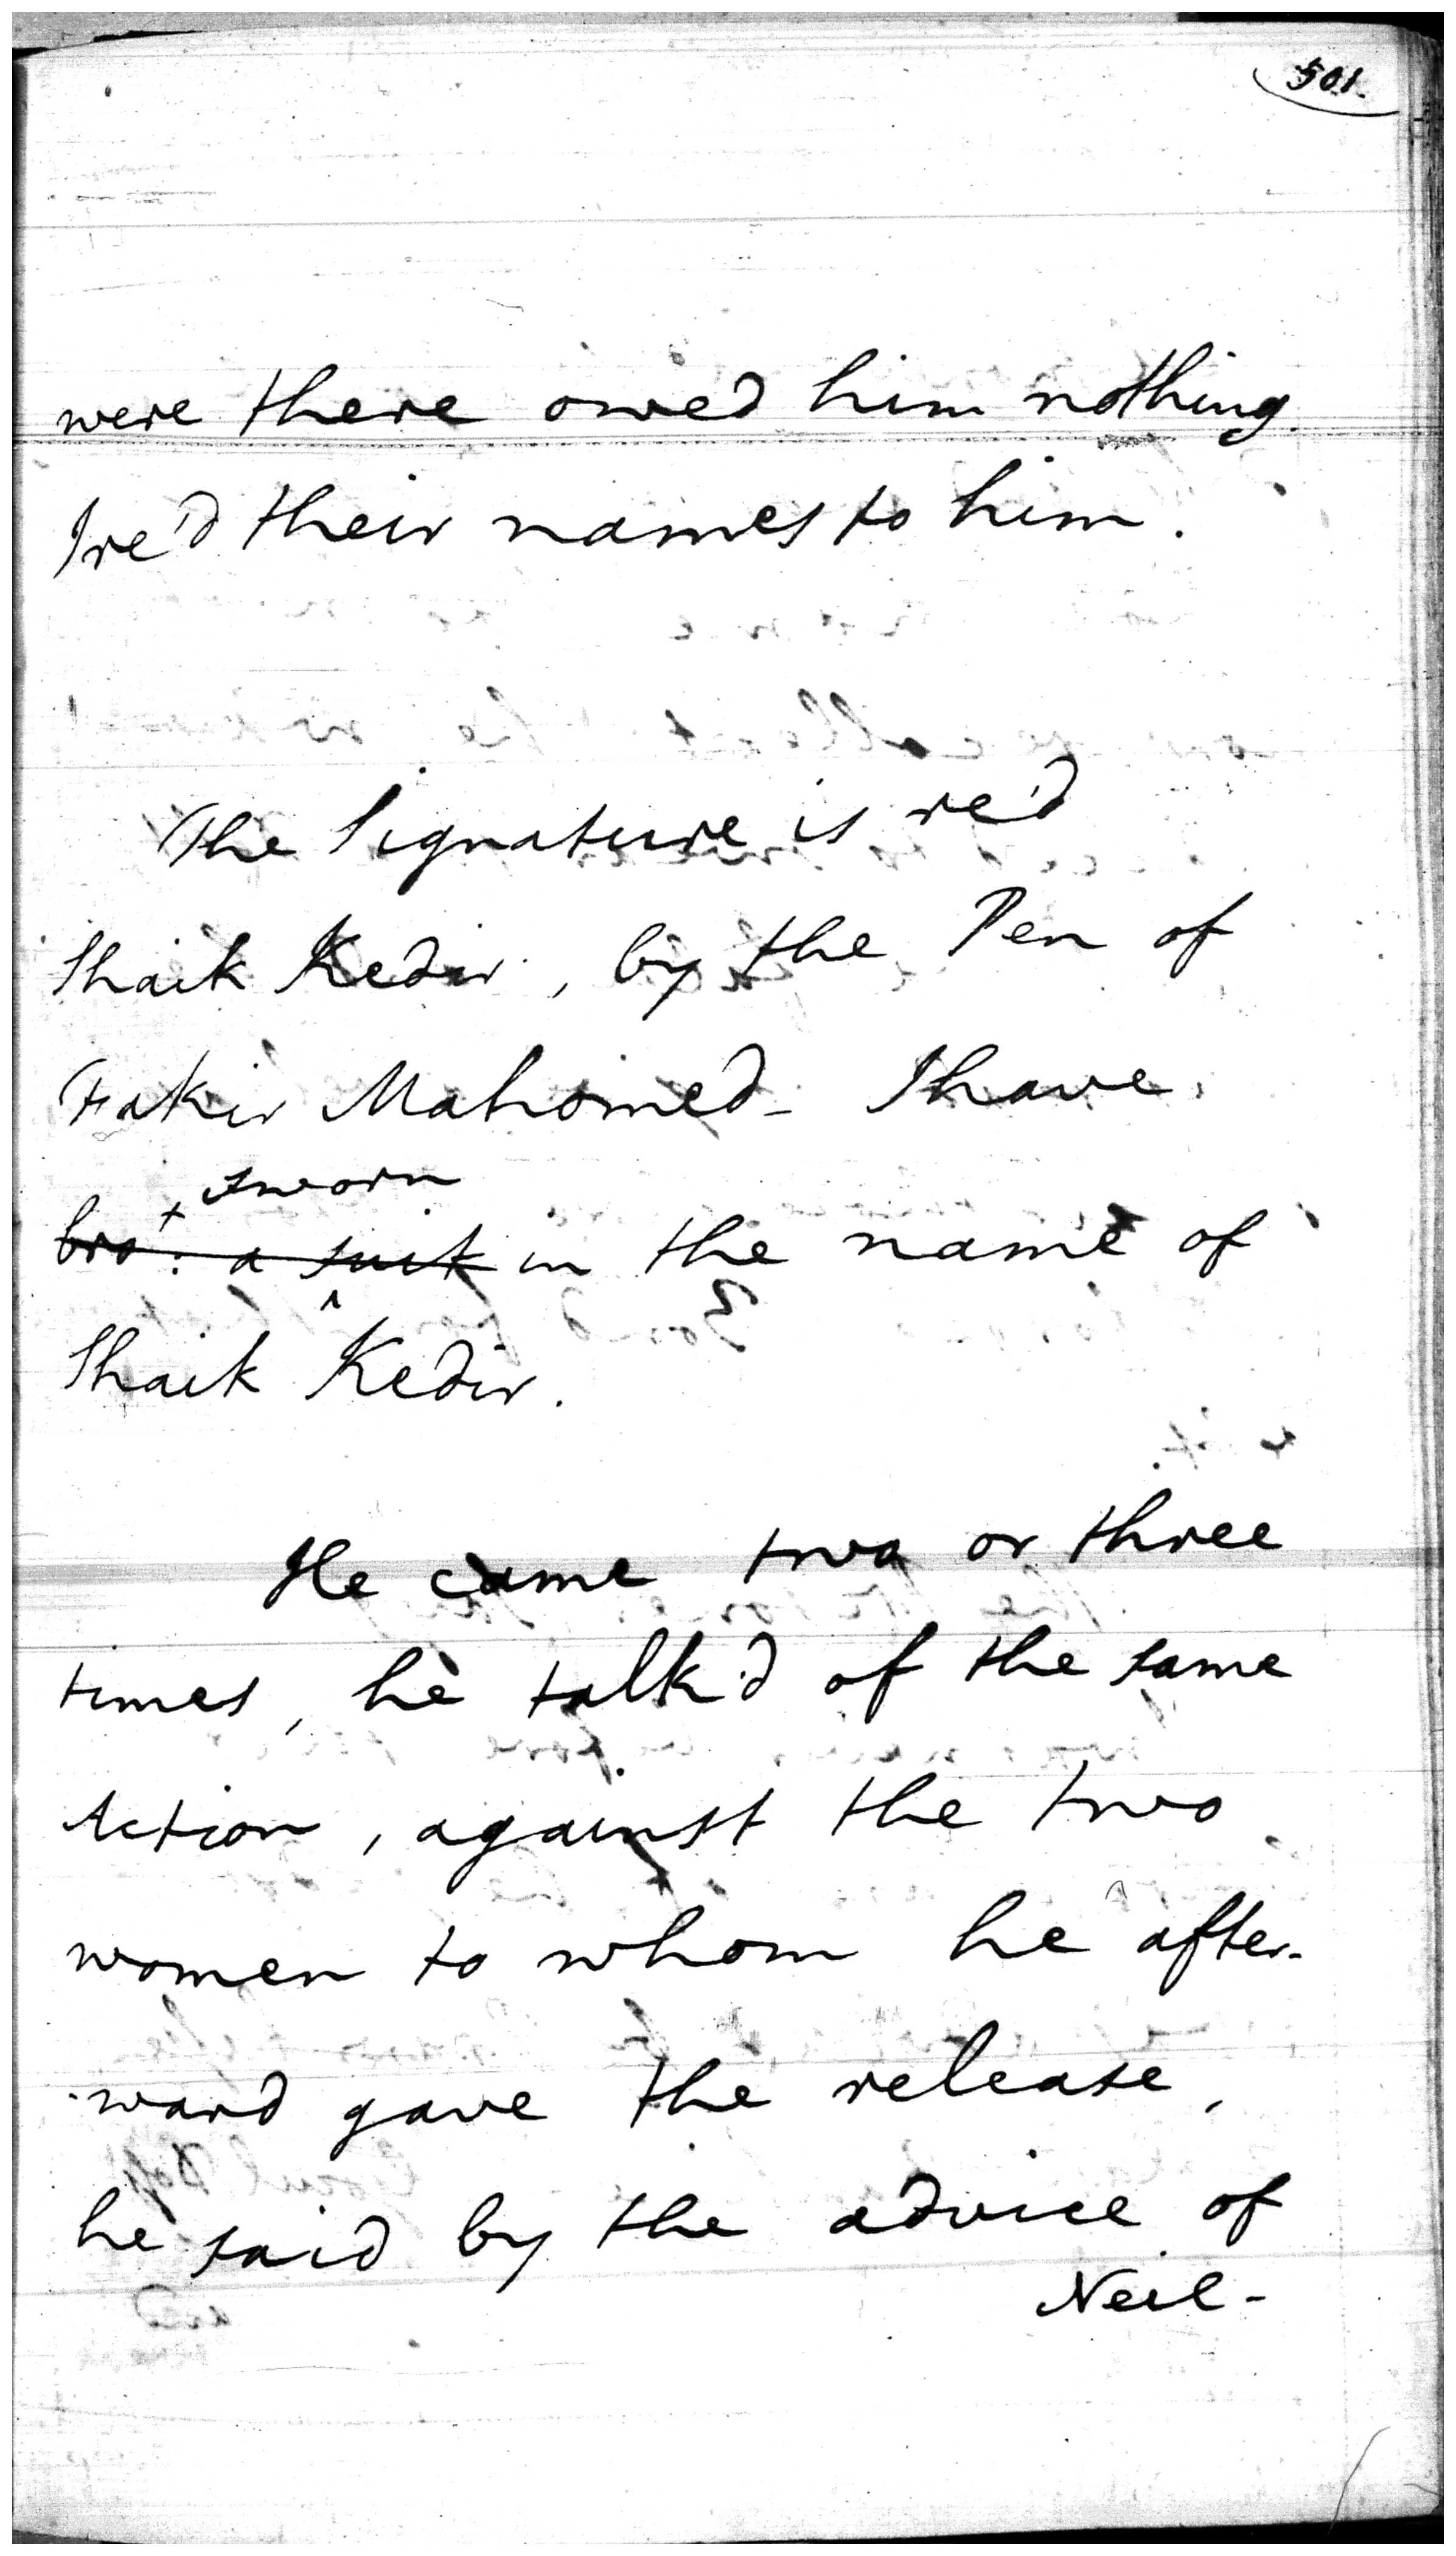 501.
were there owed him nothing.
I re'd their names to him.
The Signature is re'd
Shaik Kedir, by the Pen of
Fakir Mahomed - I have
sworn
bro^t: a suit in the name of
Shaik Kedir.
He came two or three
times, he talk'd of the same
Action, against the two
women to whom he after-
-ward gave the release,
he said by the advice of
Neil-